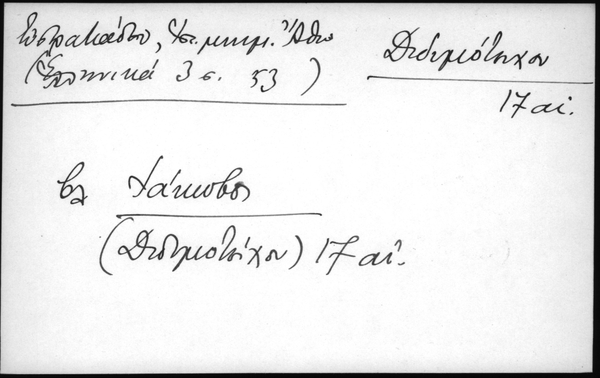 Εὐστρατιάδου, Ἱστ. μνημ. Ἄθω
(Ἑλληνικά 3 σ. 53)
Διδυμότειχον
17 αἰ.
βλ Ἰάκωβος
(Διδυμοτείχου) 17 αἰ.